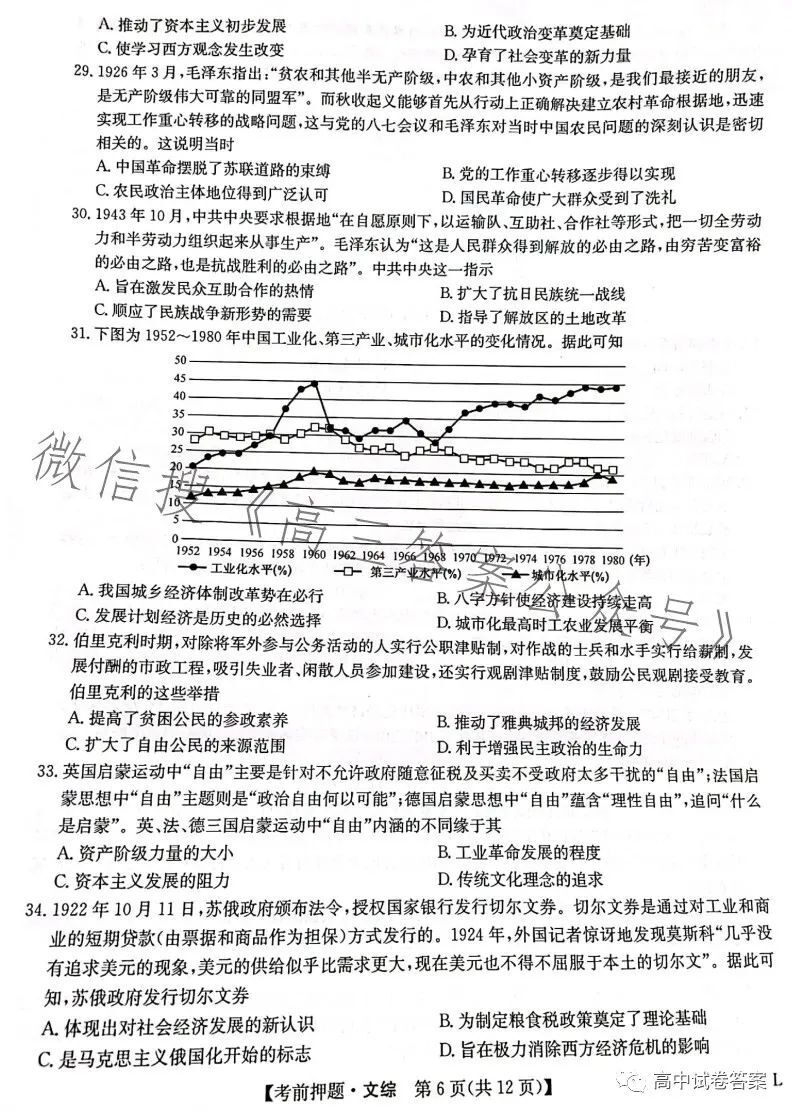 A. 推动了资本主义初步发展 B. 为近代政治变革奠定基础
C. 使学习西方观念发生改变 D. 孕育了社会变革的新力量
29. 1926 年 3 月，毛泽东指出：“贫农和其他半无产阶级，中农和其他小资产阶级，是我们最接近的朋友，
是无产阶级伟大可靠的同盟军”。而秋收起义能够首先从行动上正确解决建立农村革命根据地，迅速
实现工作重心转移的战略问题，这与党的八七会议和毛泽东对当时中国农民问题的深刻认识是密切
相关的。这说明当时
A. 中国革命摆脱了苏联道路的束缚 B. 党的工作重心转移逐步得以实现
C. 农民政治主体地位得到广泛认可 D. 国民革命使广大群众受到了洗礼
30. 1943 年 10 月，中共中央要求根据地“在自愿原则下，以运输队、互助社、合作社等形式，把一切全劳动
力和半劳动力组织起来从事生产”。毛泽东认为“这是人民群众得到解放的必由之路，由穷苦变富裕
的必由之路，也是抗战胜利的必由之路”。中共中央这一指示
A. 旨在激发民众互助合作的热情 B. 扩大了抗日民族统一战线
C. 顺应了民族战争新形势的需要 D. 指导了解放区的土地改革
31. 下图为 1952～1980 年中国工业化、第三产业、城市化水平的变化情况。据此可知
50
45
40
35
30
25
20
15
10
5
0
1952 1954 1956 1958 1960 1962 1964 1966 1968 1970 1972 1974 1976 1978 1980 (年)
工业化水平(%) 第三产业水平(%) 城市化水平(%)
A. 我国城乡经济体制改革势在必行 B. 八字方针使经济建设持续走高
C. 发展计划经济是历史的必然选择 D. 城市化最高时工农业发展平衡
32. 伯里克利时期，对除将军外参与公务活动的人实行公职津贴制，对作战的士兵和水手实行给薪制，发
展付酬的市政工程，吸引失业者、闲散人员参加建设，还实行观剧津贴制度，鼓励公民观剧接受教育。
伯里克利的这些举措
A. 提高了贫困公民的参政素养 B. 推动了雅典城邦的经济发展
C. 扩大了自由公民的来源范围 D. 利于增强民主政治的生命力
33. 英国启蒙运动中“自由”主要是针对不允许政府随意征税及买卖不受政府太多干扰的“自由”；法国启
蒙思想中“自由”主题则是“政治自由何以可能”；德国启蒙思想中“自由”蕴含“理性自由”，追问“什么
是启蒙”。英、法、德三国启蒙运动中“自由”内涵的不同缘于其
A. 资产阶级力量的大小 B. 工业革命发展的程度
C. 资本主义发展的阻力 D. 传统文化理念的追求
34. 1922 年 10 月 11 日，苏俄政府颁布法令，授权国家银行发行切尔文券。切尔文券是通过对工业和商
业的短期贷款(由票据和商品作为担保)方式发行的。1924 年，外国记者惊讶地发现莫斯科“几乎没
有追求美元的现象，美元的供给似乎比需求更大，现在美元也不得不屈服于本土的切尔文”。据此可
知，苏俄政府发行切尔文券
A. 体现出对社会经济发展的新认识 B. 为制定粮食税政策奠定了理论基础
C. 是马克思主义俄国化开始的标志 D. 旨在极力消除西方经济危机的影响
【考前押题·文综 第 6 页(共 12 页)】 L
微信搜《高三答案公众号》
高中试卷答案